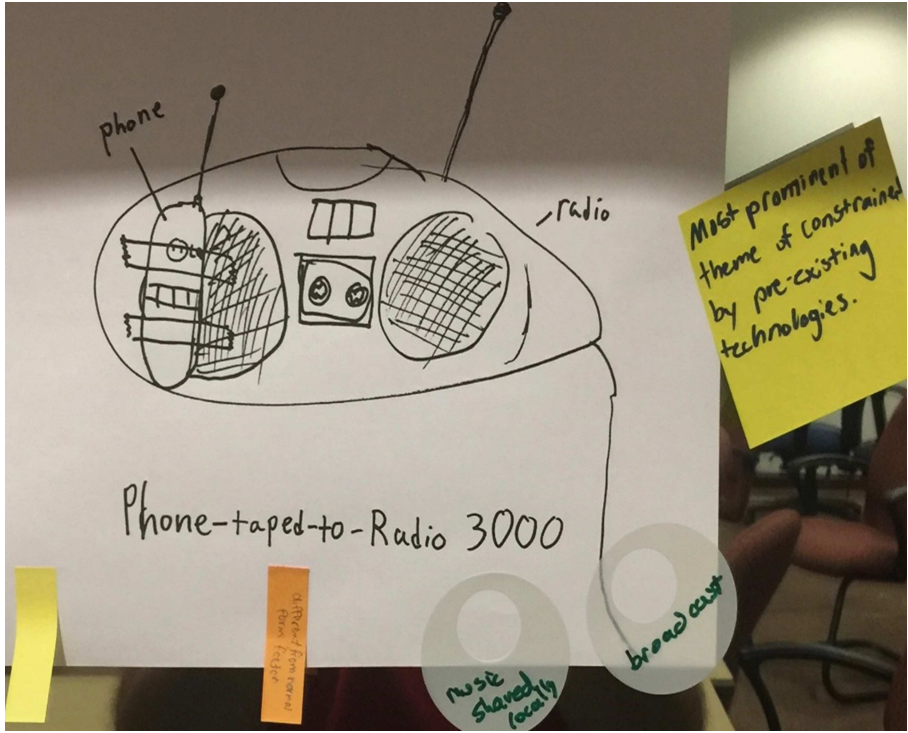 phone
radio
Most prominent of
theme of constrained
by pre-existing
technologies.
Phone-taped-to-Radio 3000
different from normal
form factor
music
shared
locally
broadcast